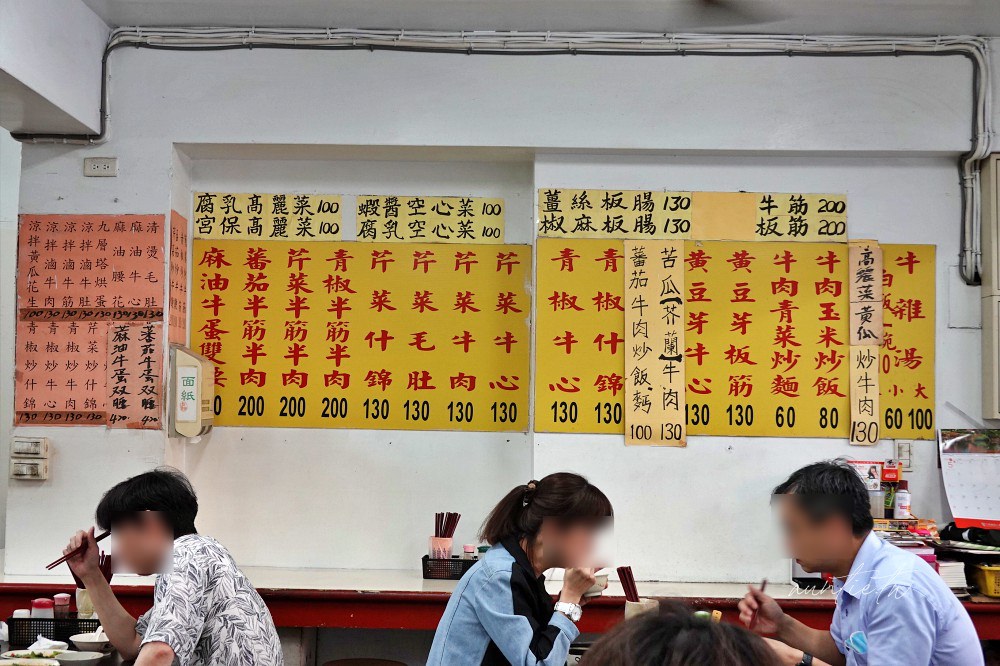 腐乳高麗菜100
宮保高麗菜100
蝦醬空心菜100
腐乳空心菜100
薑絲板腸130
椒麻板腸130
牛筋200
板筋200
清燙毛肚
麻油牛心
麻油腰花
九層塔烘蛋
涼拌滷牛肚
涼拌滷牛筋
涼拌滷牛肉
涼拌黃瓜花生
100 130 130 130
蕃茄牛蛋双腰
420
麻油牛蛋双腰
420
芹菜炒牛錦
青椒炒牛肉
青椒炒牛心
青椒炒什錦
130 130 130 130
面紙
麻油牛蛋雙
蕃茄半筋半肉 200
芹菜半筋半肉 200
青椒半筋半肉 200
芹菜什錦 130
芹菜毛肚 130
芹菜牛肉 130
芹菜牛心 130
青椒牛心 130
青椒什錦 130
蕃茄牛肉炒飯.麵 100
苦瓜【芥蘭】牛肉 130
黃豆芽牛心 130
黃豆芽板筋 130
牛肉青菜炒麵 60
牛肉玉米炒飯 80
高麗菜 黃瓜 炒牛肉 130
牛雜湯
小 大
60 100